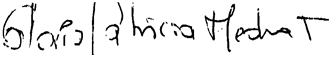 Gloria Patricia Medina T